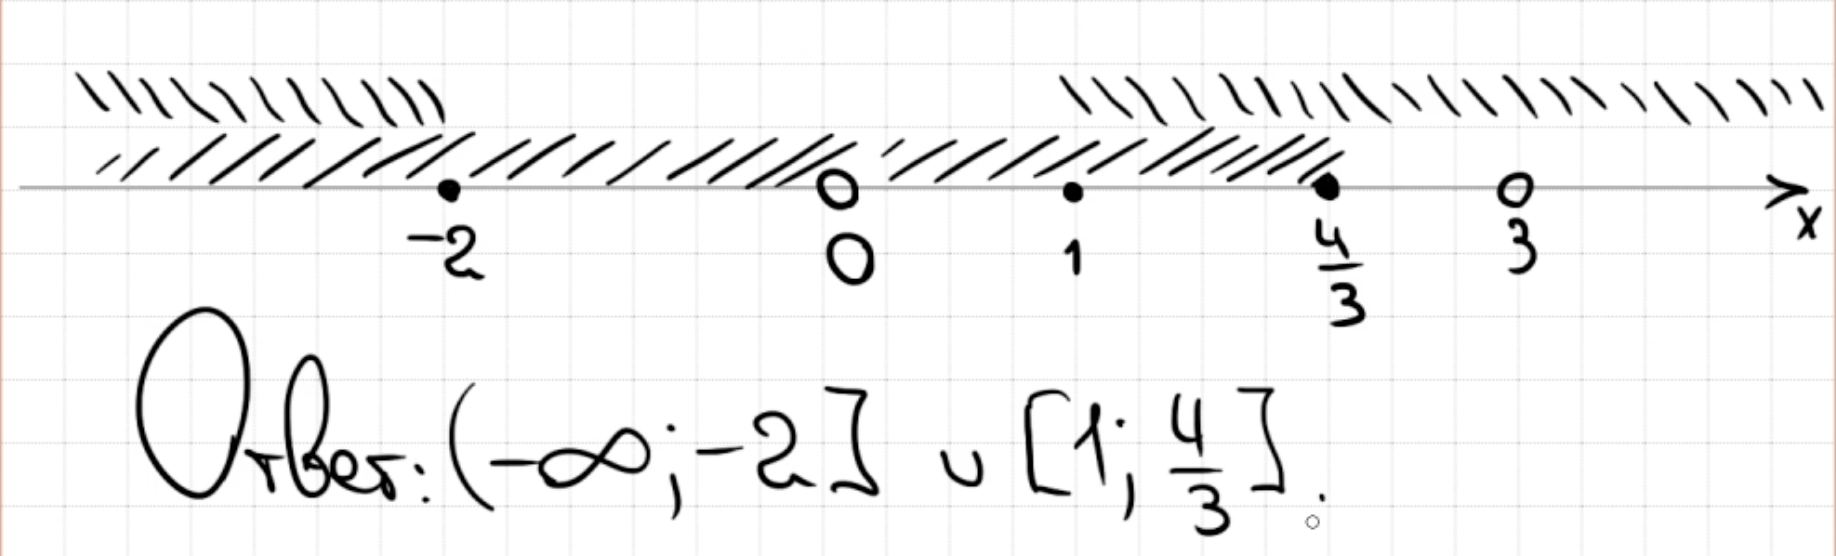 -2 0 1 4/3 3 x
Ответ: (-∞; -2] ∪ [1; 4/3].